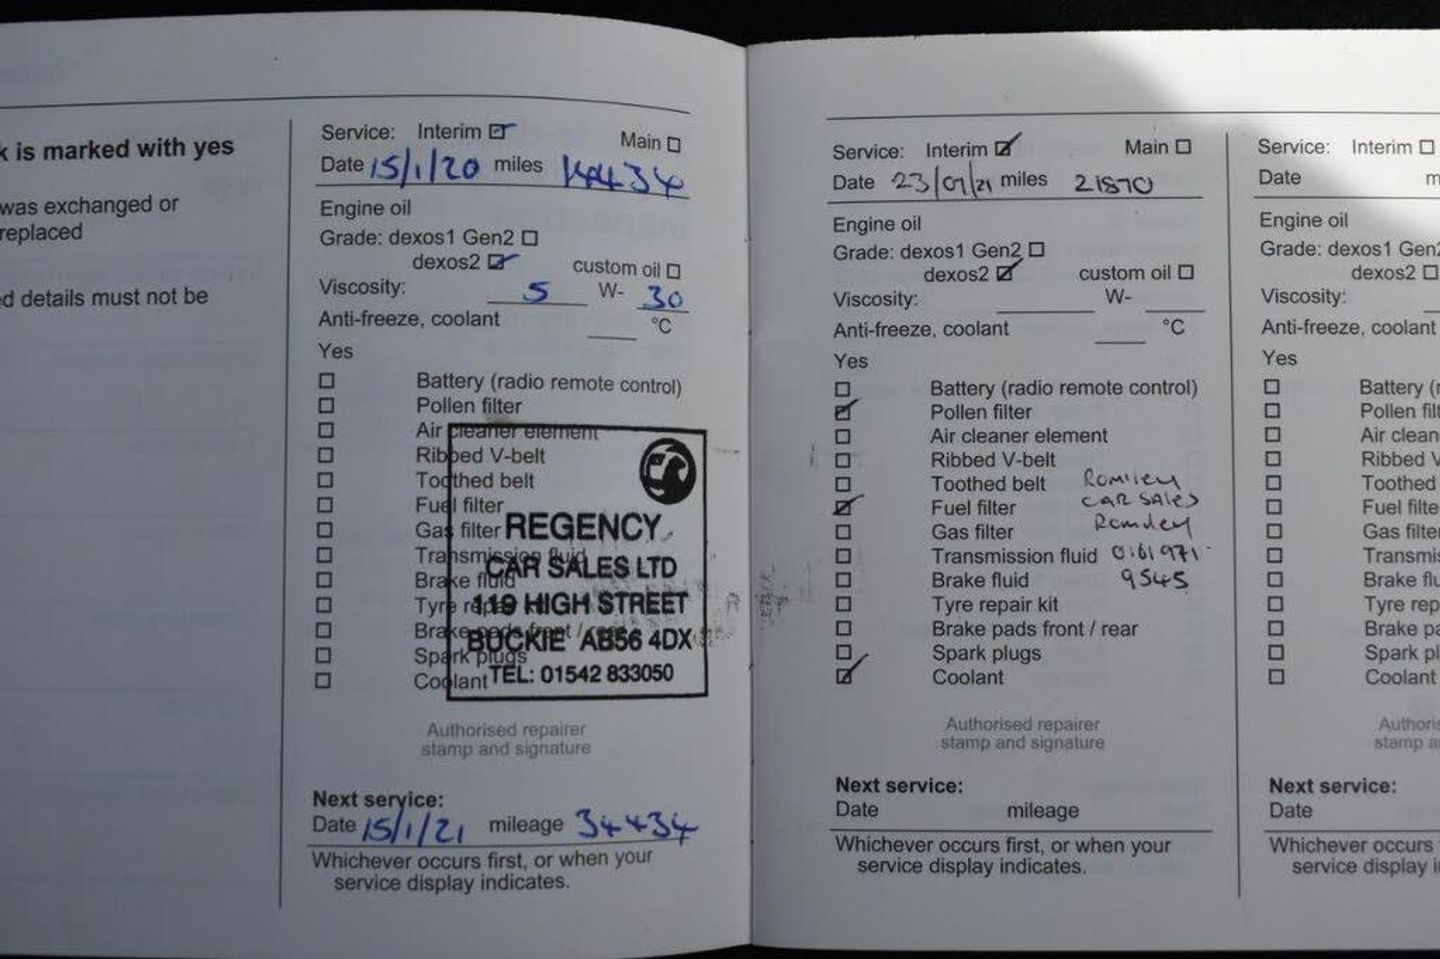 k is marked with yes
was exchanged or
replaced
d details must not be
Service: Interim Main
Date 15/1/20 miles 14434
Engine oil
Grade: dexos1 Gen2
dexos2 custom oil
Viscosity: 5 W- 30
Anti-freeze, coolant °C
Yes
Battery (radio remote control)
Pollen filter
Air cleaner element
Ribbed V-belt
Toothed belt
Fuel filter
Gas filter
Transmission fluid
Brake fluid
Tyre repair kit
Brake pads front / rear
Spark plugs
Coolant
REGENCY
CAR SALES LTD
119 HIGH STREET
BUCKIE AB56 4DX
TEL: 01542 833050
Authorised repairer
stamp and signature
Next service:
Date 15/1/21 mileage 34434
Whichever occurs first, or when your
service display indicates.
Service: Interim Main
Date 23/07/21 miles 21870
Engine oil
Grade: dexos1 Gen2
dexos2 custom oil
Viscosity: W-
Anti-freeze, coolant °C
Yes
Battery (radio remote control)
Pollen filter
Air cleaner element
Ribbed V-belt
Toothed belt
Fuel filter
Gas filter
Transmission fluid
Brake fluid
Tyre repair kit
Brake pads front / rear
Spark plugs
Coolant
Romiley
CAR SALES
Romiley
0161 971
9545
Authorised repairer
stamp and signature
Next service:
Date mileage
Whichever occurs first, or when your
service display indicates.
Service: Interim
Date m
Engine oil
Grade: dexos1 Gen2
dexos2
Viscosity:
Anti-freeze, coolant
Yes
Battery (r
Pollen filt
Air clean
Ribbed V
Toothed
Fuel filte
Gas filter
Transmis
Brake flu
Tyre rep
Brake pa
Spark pl
Coolant
Authoris
stamp a
Next service:
Date
Whichever occurs
service display i